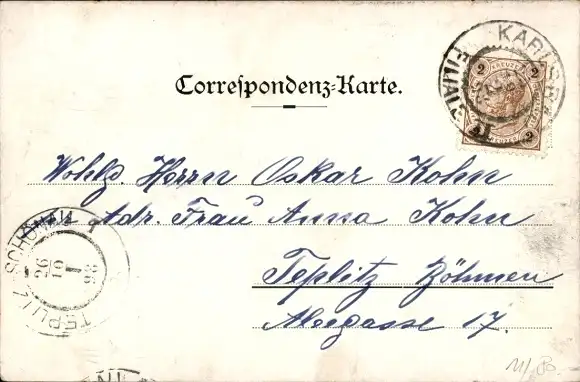 Correspondenz-Karte.
KARLSBAD
FILIALE
2 KREUZER 2
2 KREUZER 2
Wohlg. Herrn Oskar Kohn
Adr. Frau Anna Kohn
Teplitz Böhmen
Aleegasse 17.
TEPLITZ SCHÖNAU 1
26
98